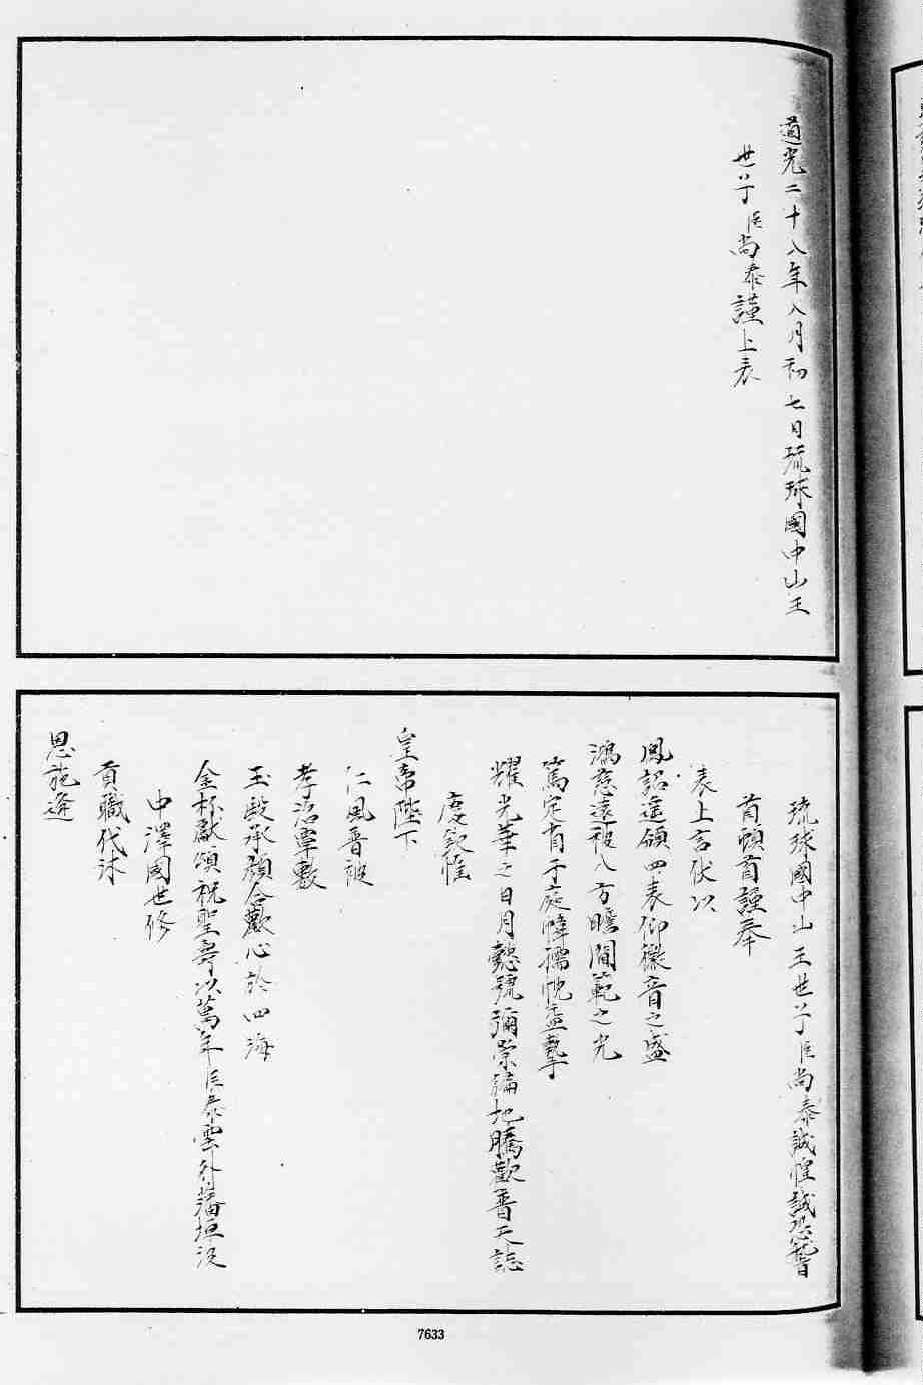 道光二十八年八月初七日琉球國中山王
世子臣尚泰謹上表
琉球國中山王世子臣尚泰誠惶誠恐稽
首頓首謹奉
表上言伏以
鳳詔遙頒四表仰徽音之盛
鴻慈遠被八方瞻閫範之光
篤定省于庭幃孺忱益摯
耀光華之日月懿號彌崇綸地騰歡普天誌
慶欽惟
皇帝陛下
仁風普被
孝治覃敷
玉殿承顏合歡心於四海
金杯獻頌祝聖壽以萬年臣泰雲外藩垣海
中澤國世修
貢職代沐
恩施逢
7633